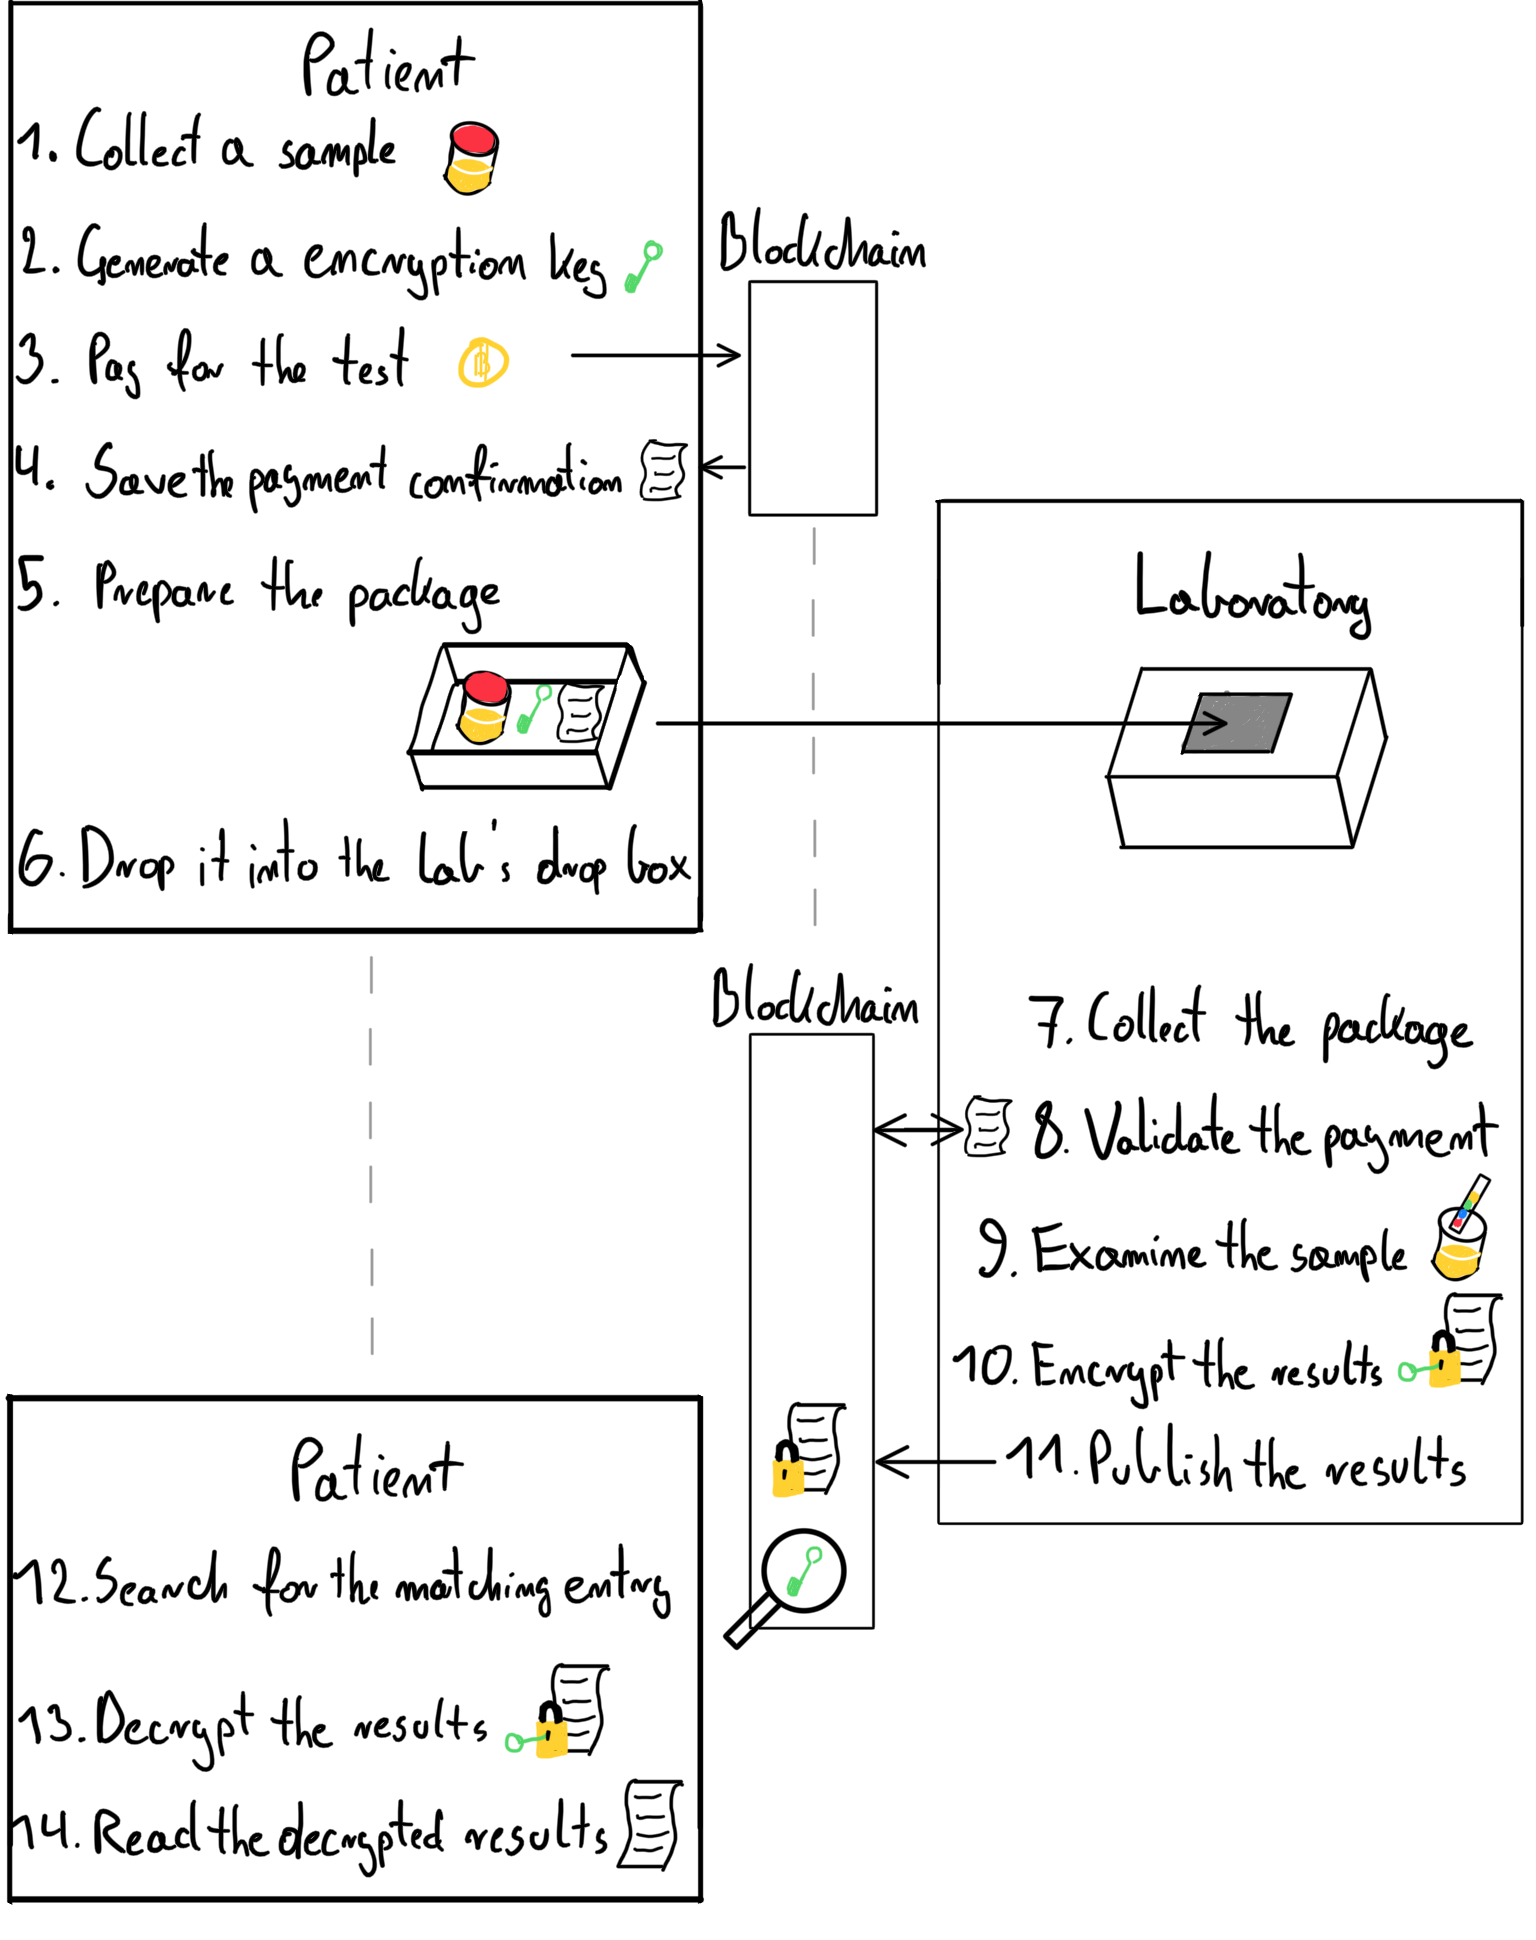 Patient
1. Collect a sample
2. Generate a encryption key
3. Pay for the test
4. Save the payment confirmation
5. Prepare the package
6. Drop it into the lab's drop box
Blockchain
Laboratory
7. Collect the package
8. Validate the payment
9. Examine the sample
10. Encrypt the results
11. Publish the results
Blockchain
Patient
12. Search for the matching entry
13. Decrypt the results
14. Read the decrypted results